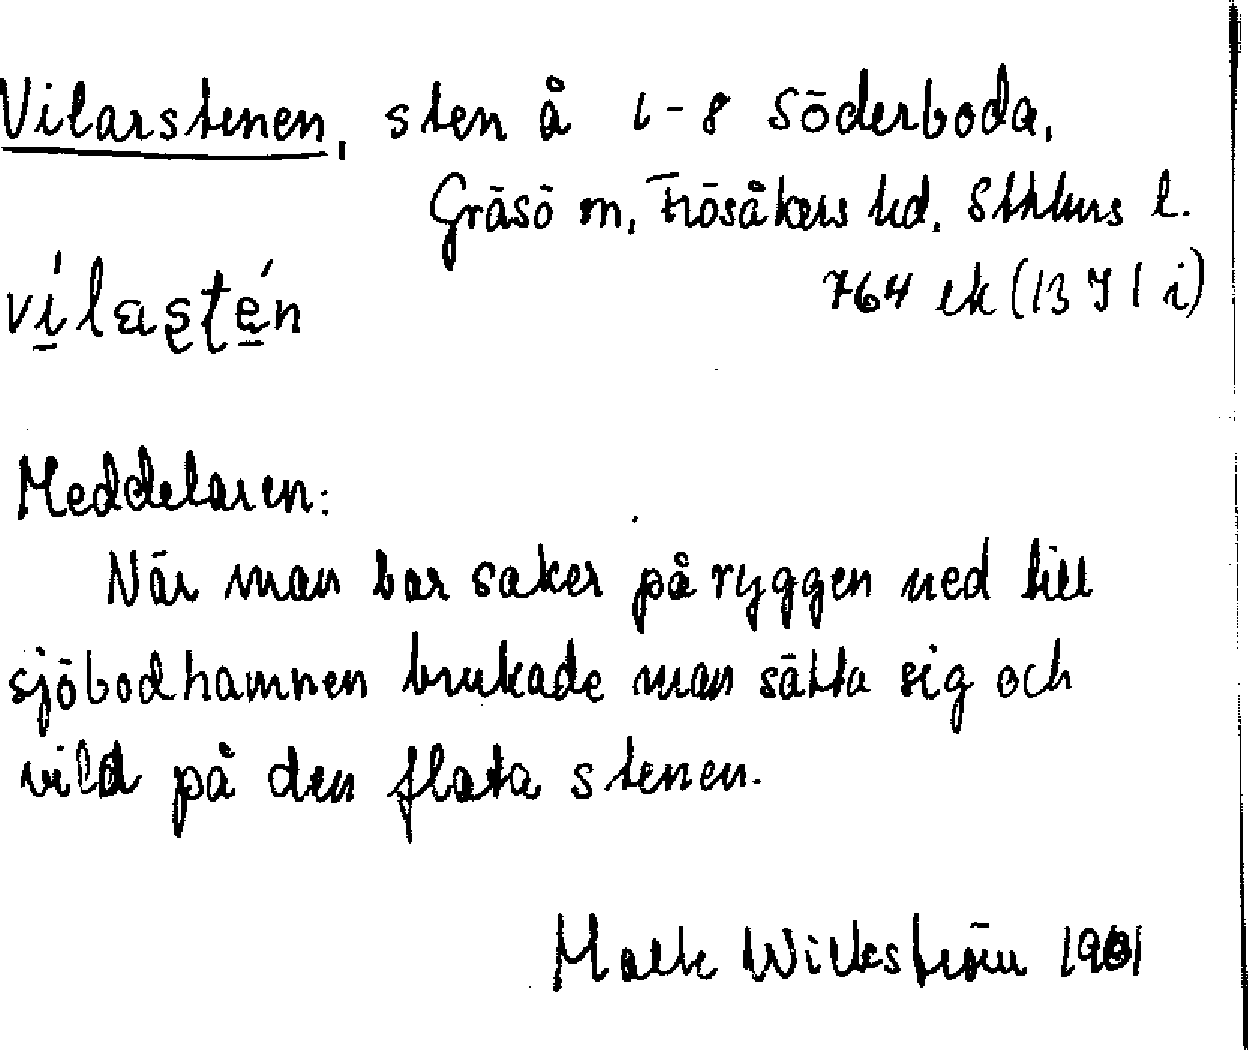 Vilarstenen, sten å 1-8 Söderboda,
Gräsö sn, Frösåkers hd. Sthlms l.
764 ek (13 I 1 i)
vílasté̱n
Meddelaren:
När man bar saker på ryggen ned till
sjöbodhamnen brukade man sätta sig och
vila på den flata stenen.
Malte Wikström